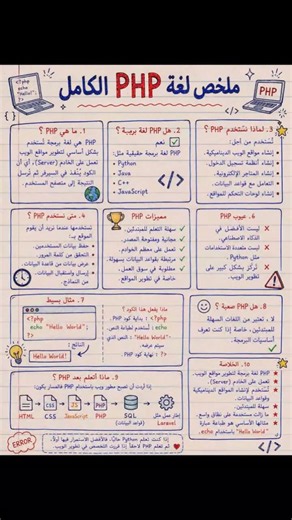 ملخص لغة PHP الكامل
<?php
echo
"Hello!";
?>
PHP
١. ما هي PHP ؟
PHP هي لغة برمجة تُستخدم
بشكل أساسي لتطوير مواقع الويب
تعمل على الخادم (Server)، أي أن
الكود يُنفّذ في السيرفر ثم تُرسل
النتيجة إلى متصفح المستخدم.
٢. هل PHP لغة برمجة ؟
نعم
PHP لغة برمجة حقيقية مثل:
• Python
• Java
• C++
• JavaScript
</>
٣. لماذا نستخدم PHP ؟
تُستخدم من أجل:
إنشاء مواقع الويب الديناميكية.
إنشاء أنظمة تسجيل الدخول.
إنشاء المتاجر الإلكترونية.
التعامل مع قواعد البيانات.
إنشاء لوحات التحكم للمواقع.
٤. متى نستخدم PHP ؟
نستخدمها عندما نريد أن يقوم
الموقع بـ:
حفظ بيانات المستخدمين.
التحقق من كلمة المرور.
عرض بيانات من قاعدة البيانات.
إرسال واستقبال البيانات
من النماذج.
مميزات PHP
✓ سهلة التعلم للمبتدئين.
✓ مجانية ومفتوحة المصدر.
✓ تعمل على أغلب الاستضافات.
✓ مرتبطة بقواعد البيانات بسهولة.
✓ مطلوبة في سوق العمل
خاصة في تطوير المواقع.
٦. عيوب PHP
× ليست الأفضل في
الذكاء الاصطناعي.
× ليست متعددة الاستخدامات
مثل Python.
× تركّز بشكل كبير على
تطوير الويب.
٧. مثال بسيط
<?php
echo "Hello World";
?>
النتائج :
Hello World!
ماذا يفعل هذا الكود؟
<?php : بداية كود PHP.
echo : تُستخدم لطباعة النص.
"Hello World" : النص الذي
سيتم عرضه.
?> : نهاية كود PHP.
٨. هل PHP صعبة ؟
لا ، تعتبر من اللغات السهلة
للمبتدئين، خاصة إذا كنت تعرف
أساسيات البرمجة.
٩. ماذا أتعلم بعد PHP ؟
إذا أردت أن تصبح مطور ويب باستخدام PHP فالمسار يكون:
HTML
CSS
JavaScript
PHP
SQL
(قواعد البيانات)
إطار عمل مثل
Laravel
١٠. الخلاصة
PHP لغة برمجة لتطوير مواقع الويب.
تعمل على الخادم (Server)
تُستخدم لإنشاء المواقع الديناميكية
وقواعد البيانات.
سهلة للمبتدئين.
ما زالت مستخدمة على نطاق واسع.
مثالها الأساسي هو طباعة عبارة
"Hello World" باستخدام echo.
ERROR
</>